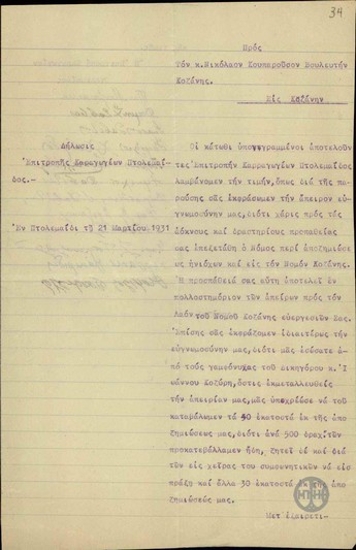 34
Πρός
Τόν κ.Νικόλαον Σουμαροῦσον Βουλευτήν
Κοζάνης.
Εἰς Κοζάνην
Δήλωσις
Ἐπιτροπῆς Καρραγωγέων Πτολεμαί-
δος.-
Ἐν Πτολεμαΐδι τῇ 21 Μαρτίου 1931
Οἱ κάτωθι ὑπογεγραμμένοι ἀποτελοῦν
τες Ἐπιτροπήν Καρραγωγέων Πτολεμαΐδος
λαμβάνομεν τήν τιμήν, ὅπως διά τῆς πα-
ρούσης σᾶς ἐκφράσωμεν τήν ἄπειρον εὐ-
γνωμοσύνην μας, διότι χάρις πρός τάς
ἀόκνους καί δραστηρίους προσπαθείας
σας ἐπεξετάθη ὁ Νόμος περί ἀποζημιώσε
ως ἡνιόχων καί εἰς τόν Νομόν Κοζάνης.
Ἡ προσπάθειά σας αὕτη ἀποτελεῖ ἕν
πολλοστημόριον τῶν ἀπείρων πρός τόν
Λαόν τοῦ Νομοῦ Κοζάνης εὐεργεσιῶν Σας.
Ἐπίσης σᾶς ἐκφράζομεν ἰδιαιτέρως τήν
εὐγνωμοσύνην μας, διότι μᾶς ἐσώσατε
ἀπό τούς γαμψόνυχας τοῦ Δικηγόρου κ.Ἰ
ωάννου Κοζύρη, ὅστις ἐκμεταλλευθείς
τήν ἀπειρίαν μας, μᾶς ὑπεχρέωσε νά τοῦ
καταβάλωμεν τά 40 ἑκατοστά ἐκ τῆς ἀπο
ζημιώσεώς μας, διότι ἀνά 500 δραχμάς
προκατεβάλλαμεν ἤδη, ζητεῖ δέ καί διά
τῶν εἰς χεῖρας του συμφωνητικῶν νά εἰσ
πράξῃ καί ἄλλα 30 ἑκατοστά ἐκ τῆς ἀπο
ζημιώσεώς μας.
Μετ' ἐξαιρετι-